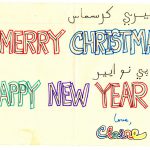 ميري كرسمس
MERRY CHRISTMA
هابي نو ايير
APPY NEW YEAR
Love,
Claire